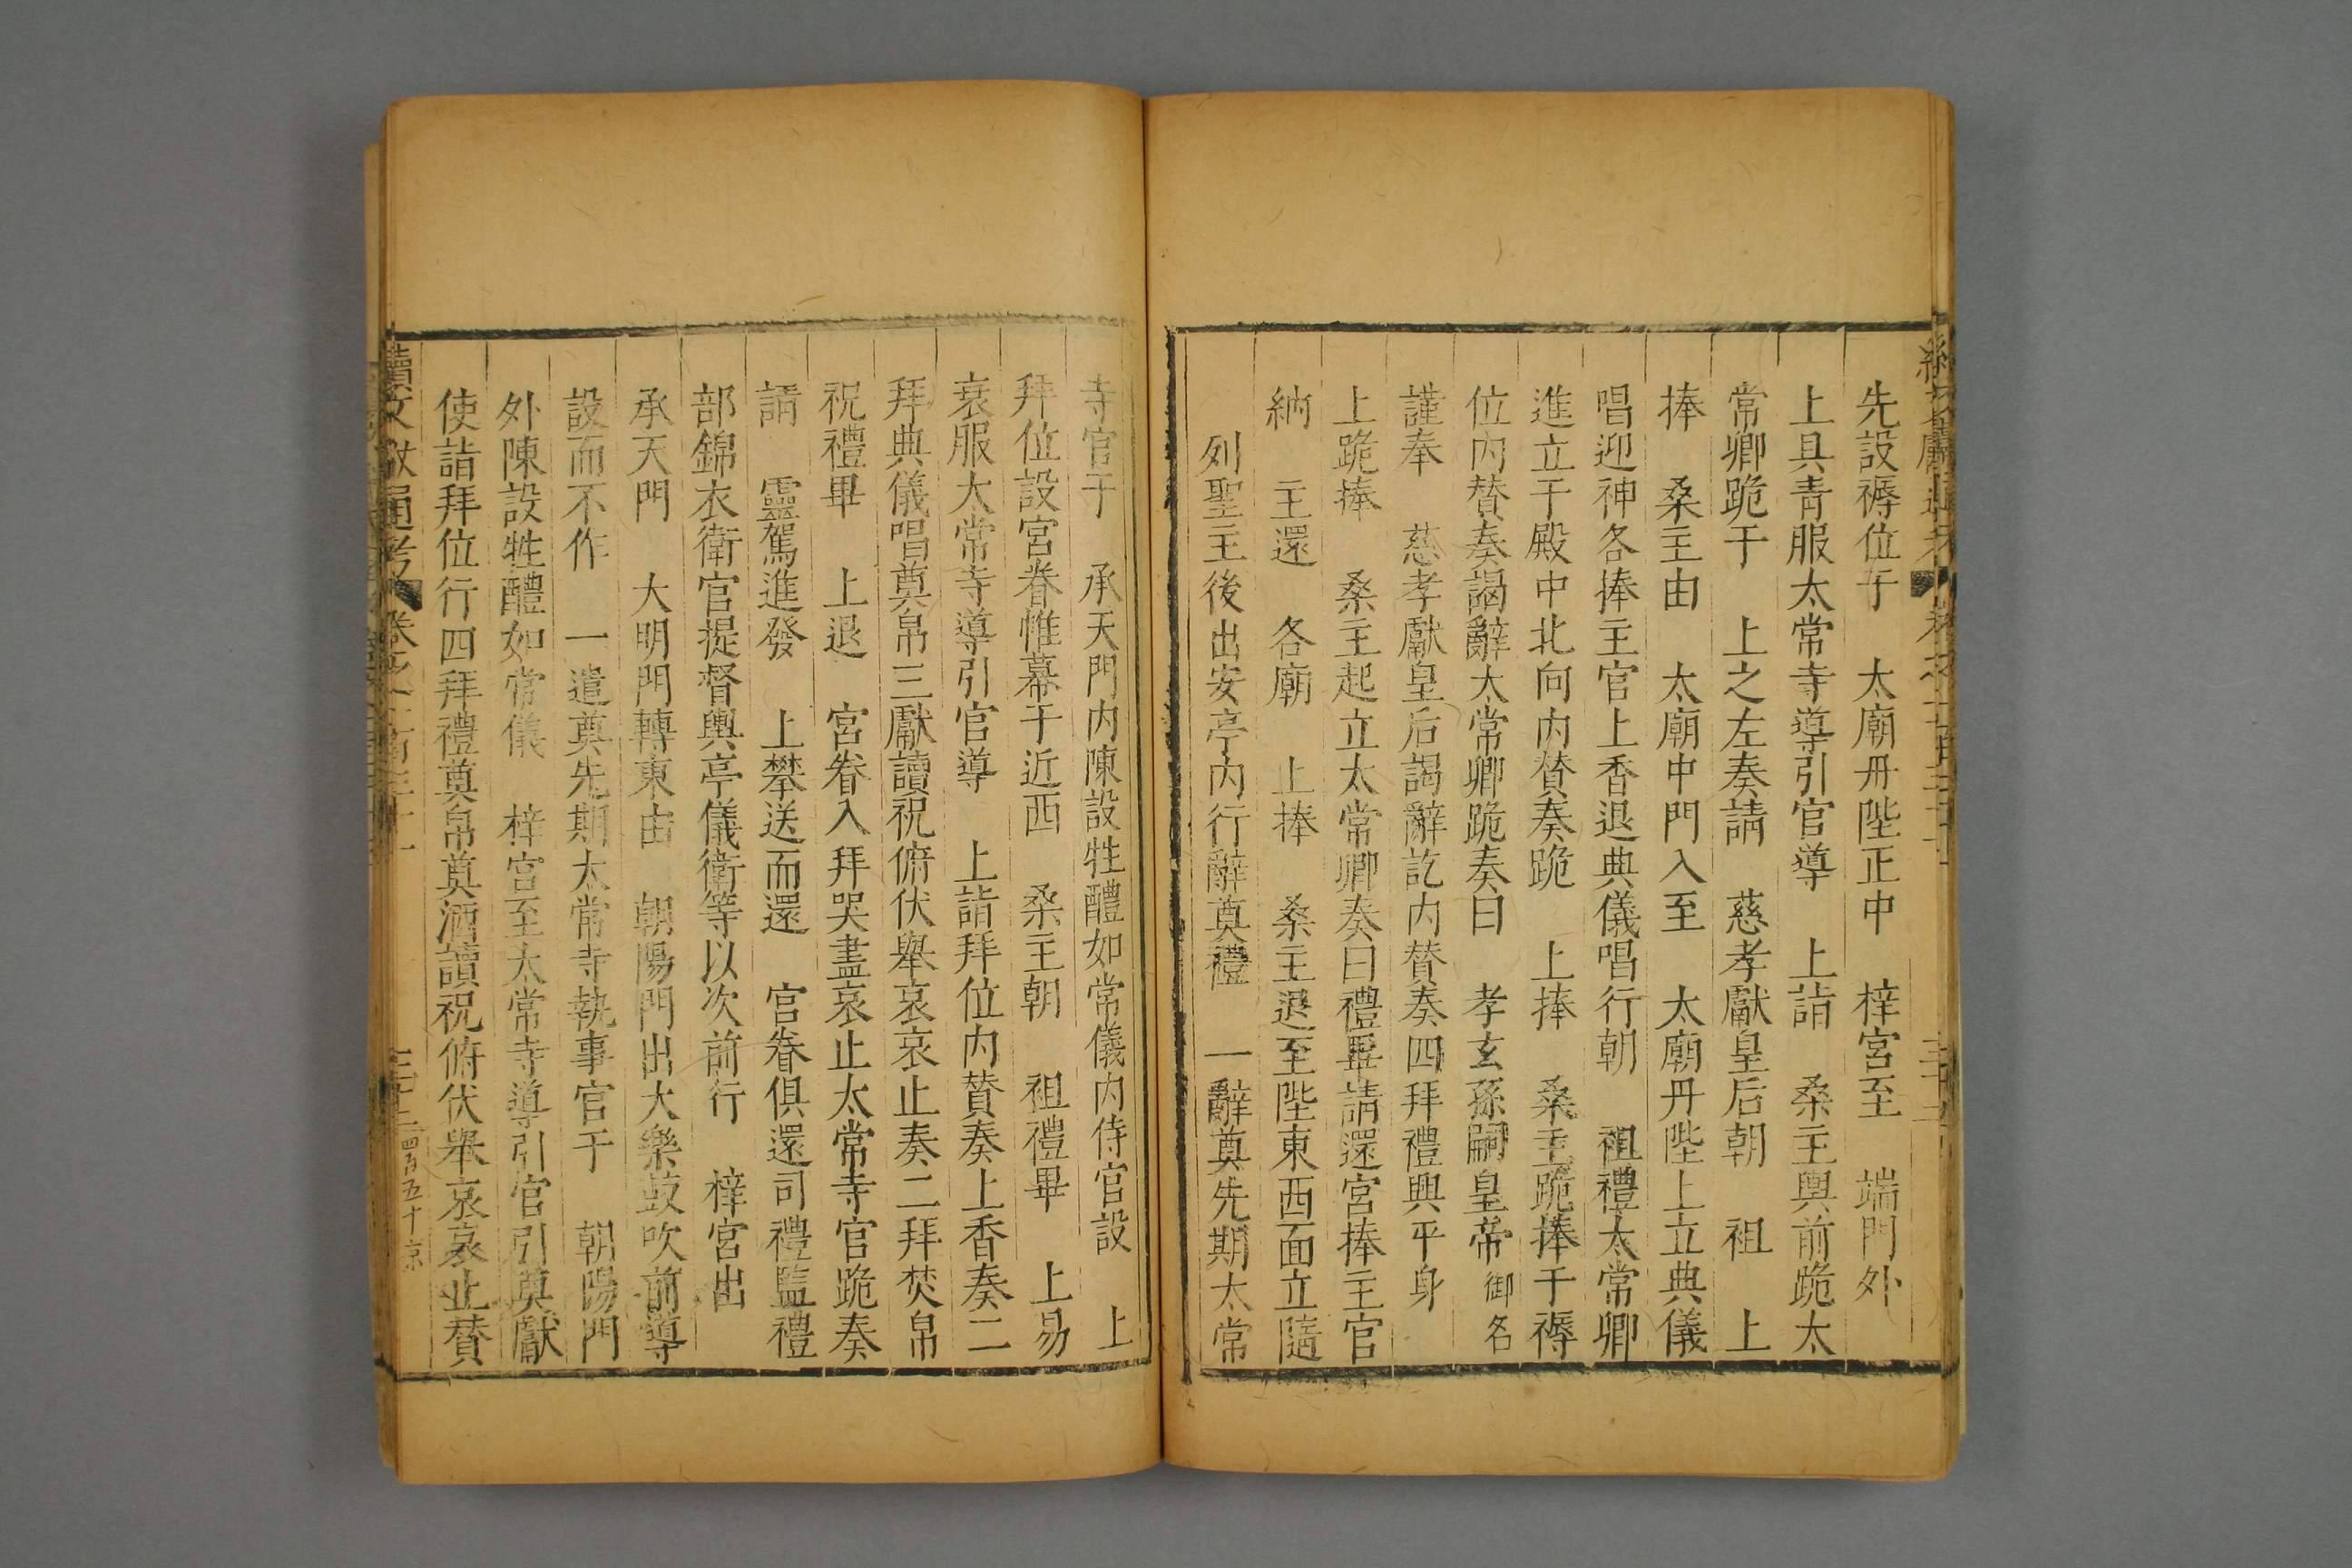 先設褥位于　太廟丹陛正中　梓宮至　端門外
上具青服太常寺導引官導　上詣　桑主輿前跪太
常卿跪于　上之左奏請　慈孝獻皇后朝　祖　上
捧　桑主由　太廟中門入至　太廟丹陛上立典儀
唱迎神各捧主官上香退典儀唱行朝　祖禮太常卿
進立于殿中北向內贊奏跪　上捧　桑主跪捧于褥
位內贊奏謁辭太常卿跪奏曰　孝玄孫嗣皇帝御名
謹奉　慈孝獻皇后謁辭訖內贊奏四拜禮興平身
上跪捧　桑主起立太常卿奏曰禮畢請還宮捧主官
納　主還　各廟　上捧　桑主退至陛東西面立隨
列聖主後出安亭內行辭奠禮　一辭奠先期太常
寺官于　承天門內陳設牲醴如常儀內侍官設　上
拜位設宮眷帷幕于近西　桑主朝　祖禮畢　上易
衰服太常寺導引官導　上詣拜位內贊奏上香奏二
拜典儀唱奠帛三獻讀祝俯伏舉哀哀止奏二拜焚帛
祝禮畢　上退　宮眷入拜哭盡哀止太常寺官跪奏
請　靈駕進發　上攀送而還　宮眷俱還司禮監禮
部錦衣衛官提督輿亭儀衛等以次前行　梓宮出
承天門　大明門轉東由　朝陽門出大樂鼓吹前導
設而不作　一遣奠先期太常寺執事官于　朝陽門
外陳設牲醴如常儀　梓宮至太常寺導引官引奠獻
使詣拜位行四拜禮奠帛奠酒讀祝俯伏舉哀哀止贊
續文獻通考　卷之
三十二　四百五十　京